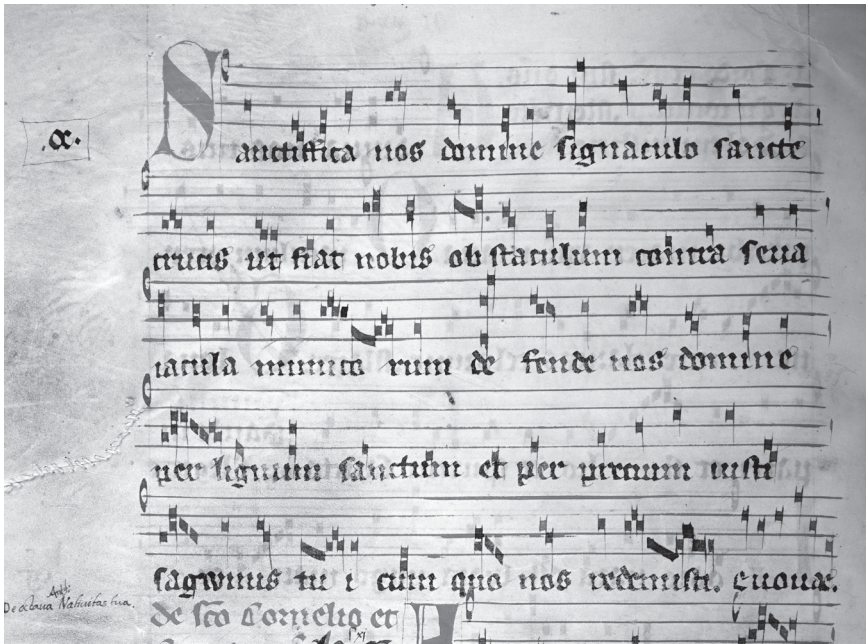 .α.
Sanctifica nos domine signaculo sancte
crucis ut fiat nobis ob staculum contra seua
iacula inimico rum de fende nos domine
per lignum sanctum et per precium iusti
sagwinis tu i cum quo nos redemisti. euouae.
Antʒ:
De octaua Natiuitas tua.
de sc̄o Cornelio et